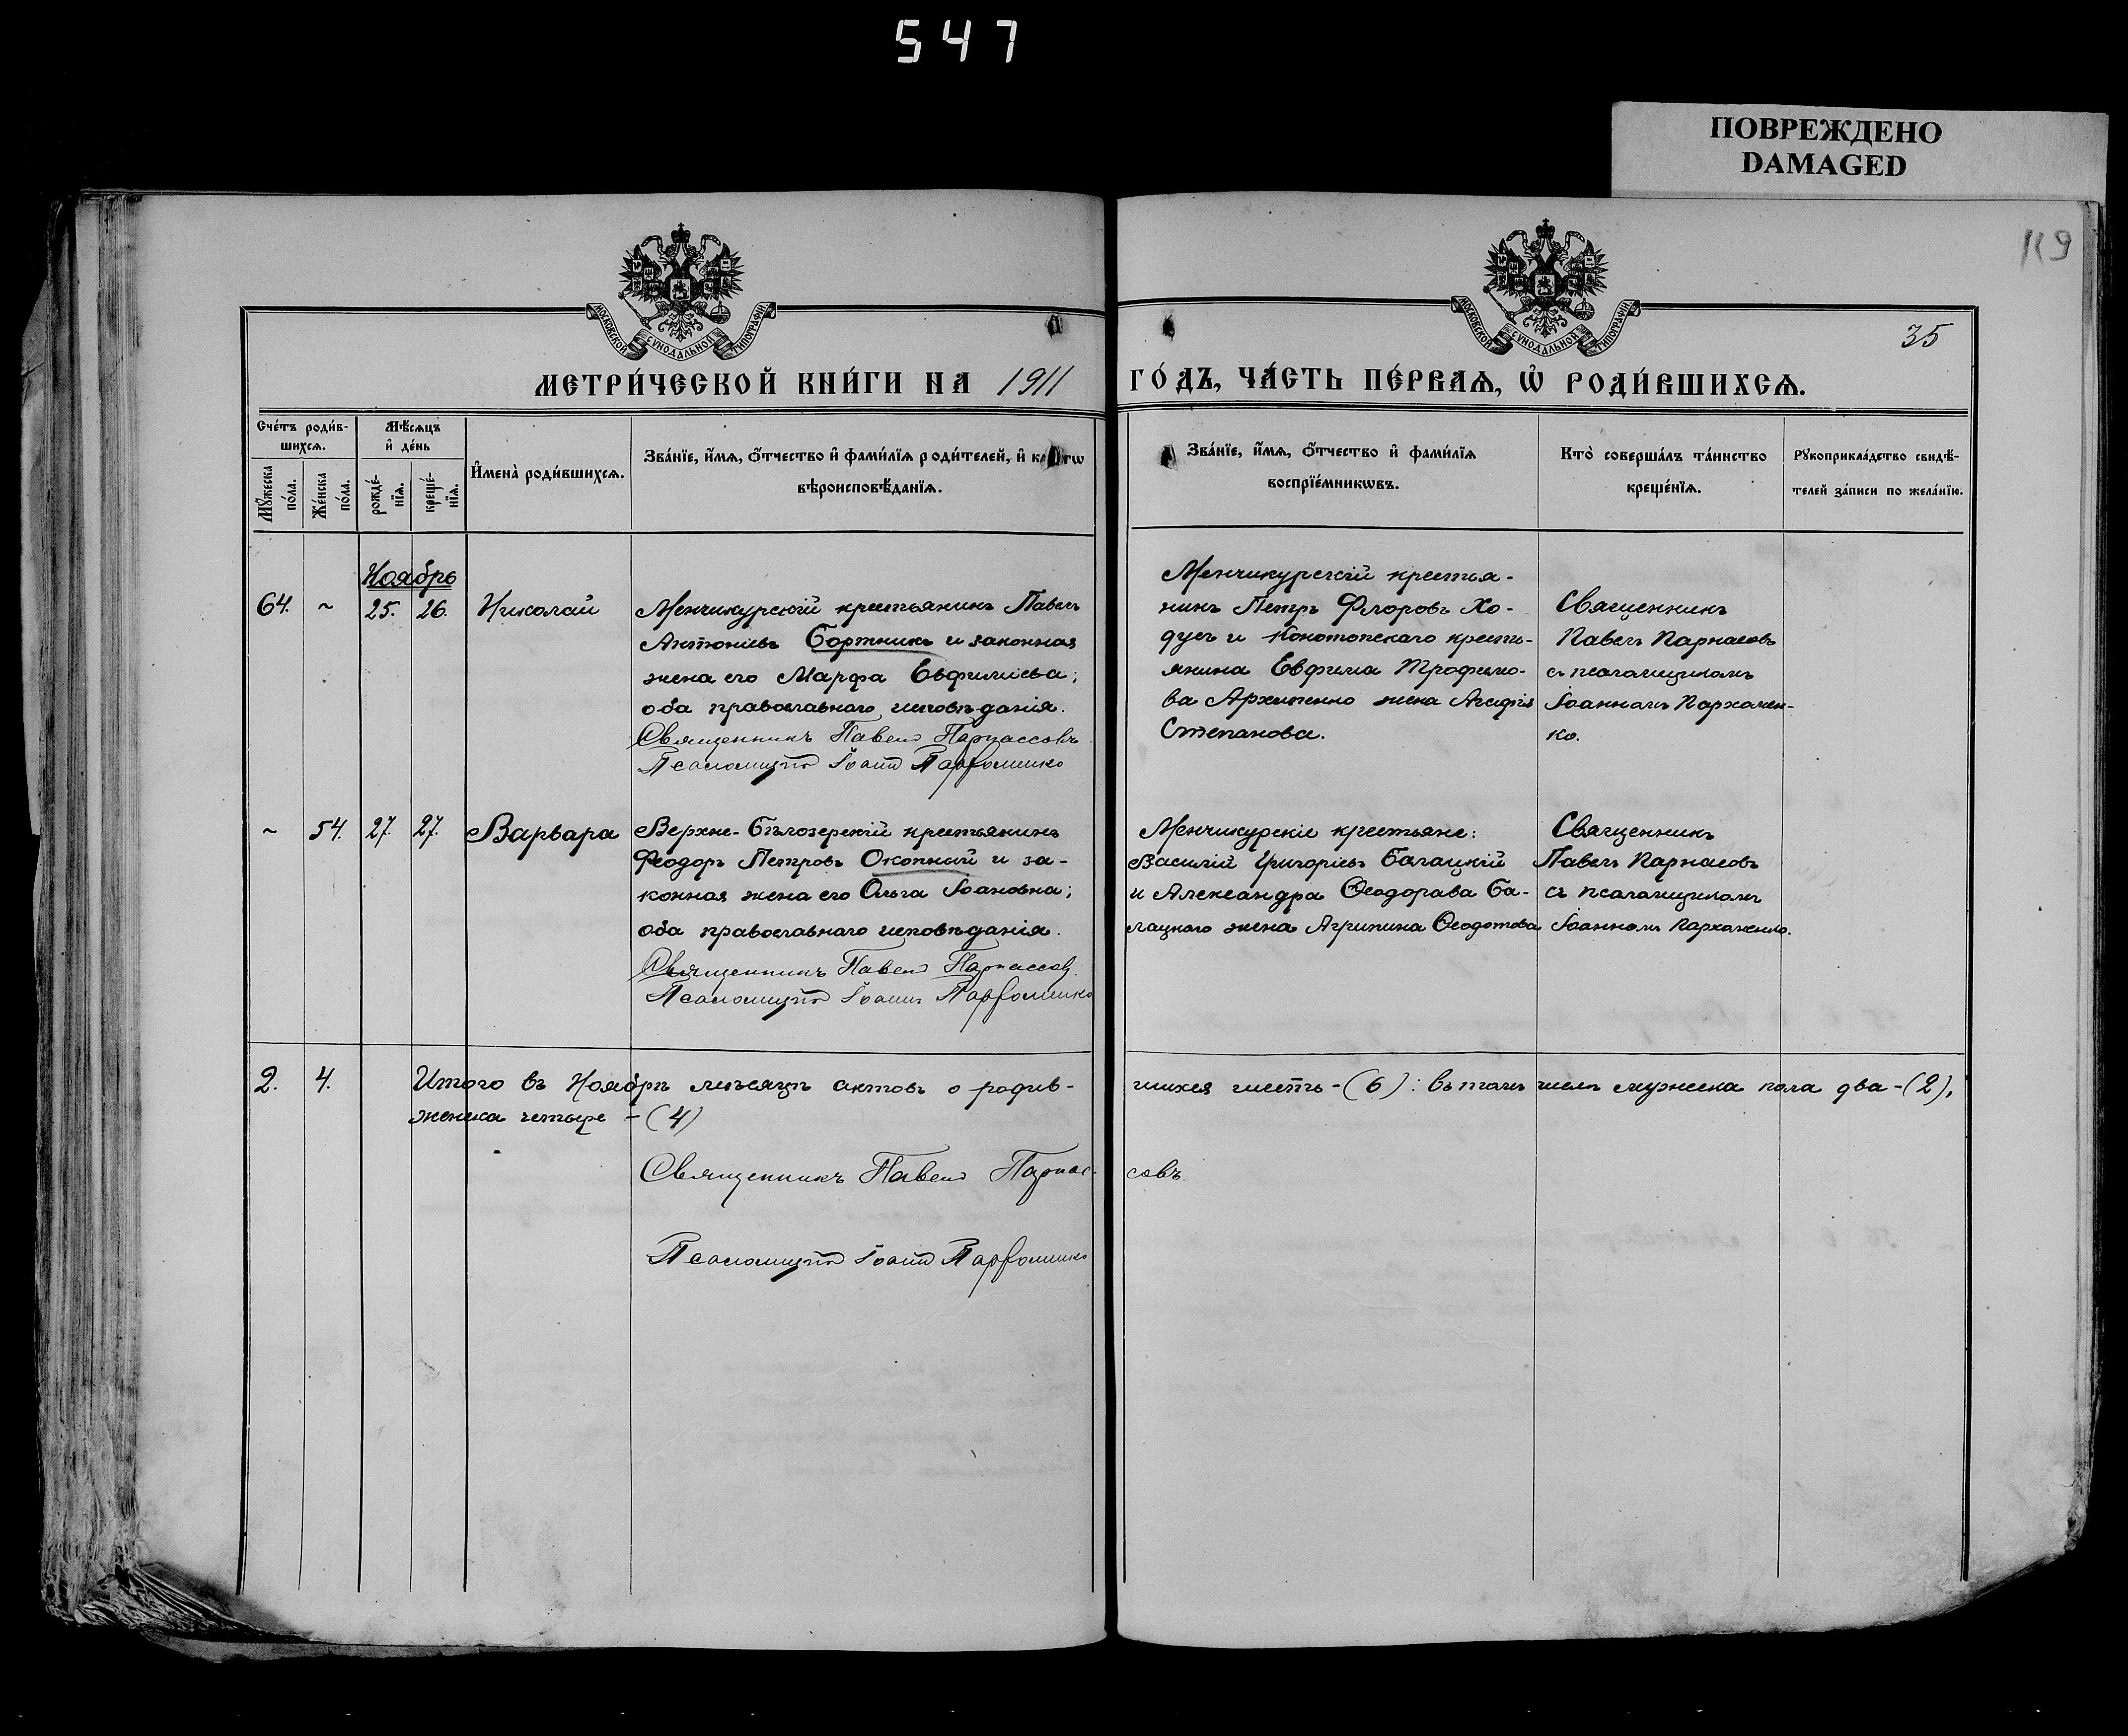 547
ПОВРЕЖДЕНО
DAMAGED
119
35
МОСКОВСКОЙ СѴНОДАЛЬНОЙ ТИПОГРАФІИ
МОСКОВСКОЙ СѴНОДАЛЬНОЙ ТИПОГРАФІИ
МЕТРИ́ЧЕСКОЙ КНИ́ГИ НА 1911
ГО́ДЪ, ЧА́СТЬ ПЕ́РВАѦ, Ѡ҆ РОДИ́ВШИХСѦ.
Сче́тъ роди́в-
шихсѧ.
Мꙋ́жеска по́ла.
Же́нска по́ла.
Мѣ́сѧцъ
и҆ де́нь
рожде́-
нїѧ.
креще́-
нїѧ.
И҆мена̀ роди́вшихсѧ.
Зва́нїе, и҆́мѧ, ѻ҆́тчество и҆ фами́лїѧ роди́телей, и҆
вѣроисповѣ́данїѧ.
Зва́нїе, и҆́мѧ, ѻ҆́тчество и҆ фами́лїѧ
воспрїе́мникѡвъ.
Кто̀ соверша́лъ та́инство
креще́нїѧ.
Рꙋкоприкла́дство свидѣ́-
телей за́писи по жела́нїю.
Ноябрь
64. ~ 25. 26. Николай
Менчикурскій крестьянинъ Павелъ
Антоніевъ Бортникъ и законная
жена его Марфа Евфиміева;
оба православнаго исповѣданія.
Священникъ Павелъ Парнассовъ
Псаломщикъ Іоаннъ Пархоменко
Менчикурскій крестья-
нинъ Петръ Флоровъ Хо-
дусъ и Конотопскаго кресть-
янина Евфима Трофимо-
ва Архипенко жена
Степанова.
Священникъ
Павелъ Парнасовъ
съ псаломщикомъ
Іоанномъ Пархомен-
ко.
~ 54. 27. 27. Варвара
Верхне-Бѣлозерскій крестьянинъ
Феодоръ Петровъ Окопный и за-
конная жена его Ольга Іоановна;
оба православнаго исповѣданія.
Священникъ Павелъ Парнассовъ
Псаломщикъ Іоаннъ Пархоменко
Менчикурскіе крестьяне:
Василій Григоріевъ Балацкій
и Александра Ѳеодорава Ба-
лацкого жена Агрипина Ѳеодотова
Священникъ
Павелъ Парнасовъ
съ псаломщикомъ
Іоанномъ Пархоменко.
2. 4. Итого въ Ноябрѣ мѣсяцѣ актовъ о родив-
шихся шесть-(6): въ томъ числѣ мужеска пола два-(2),
женска четыре - (4)
Священникъ Павелъ Парнас-
совъ
Псаломщикъ Іоаннъ Пархоменко